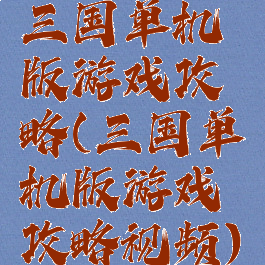 三国单机
版游戏攻
略(三国单
机版游戏
攻略视频)